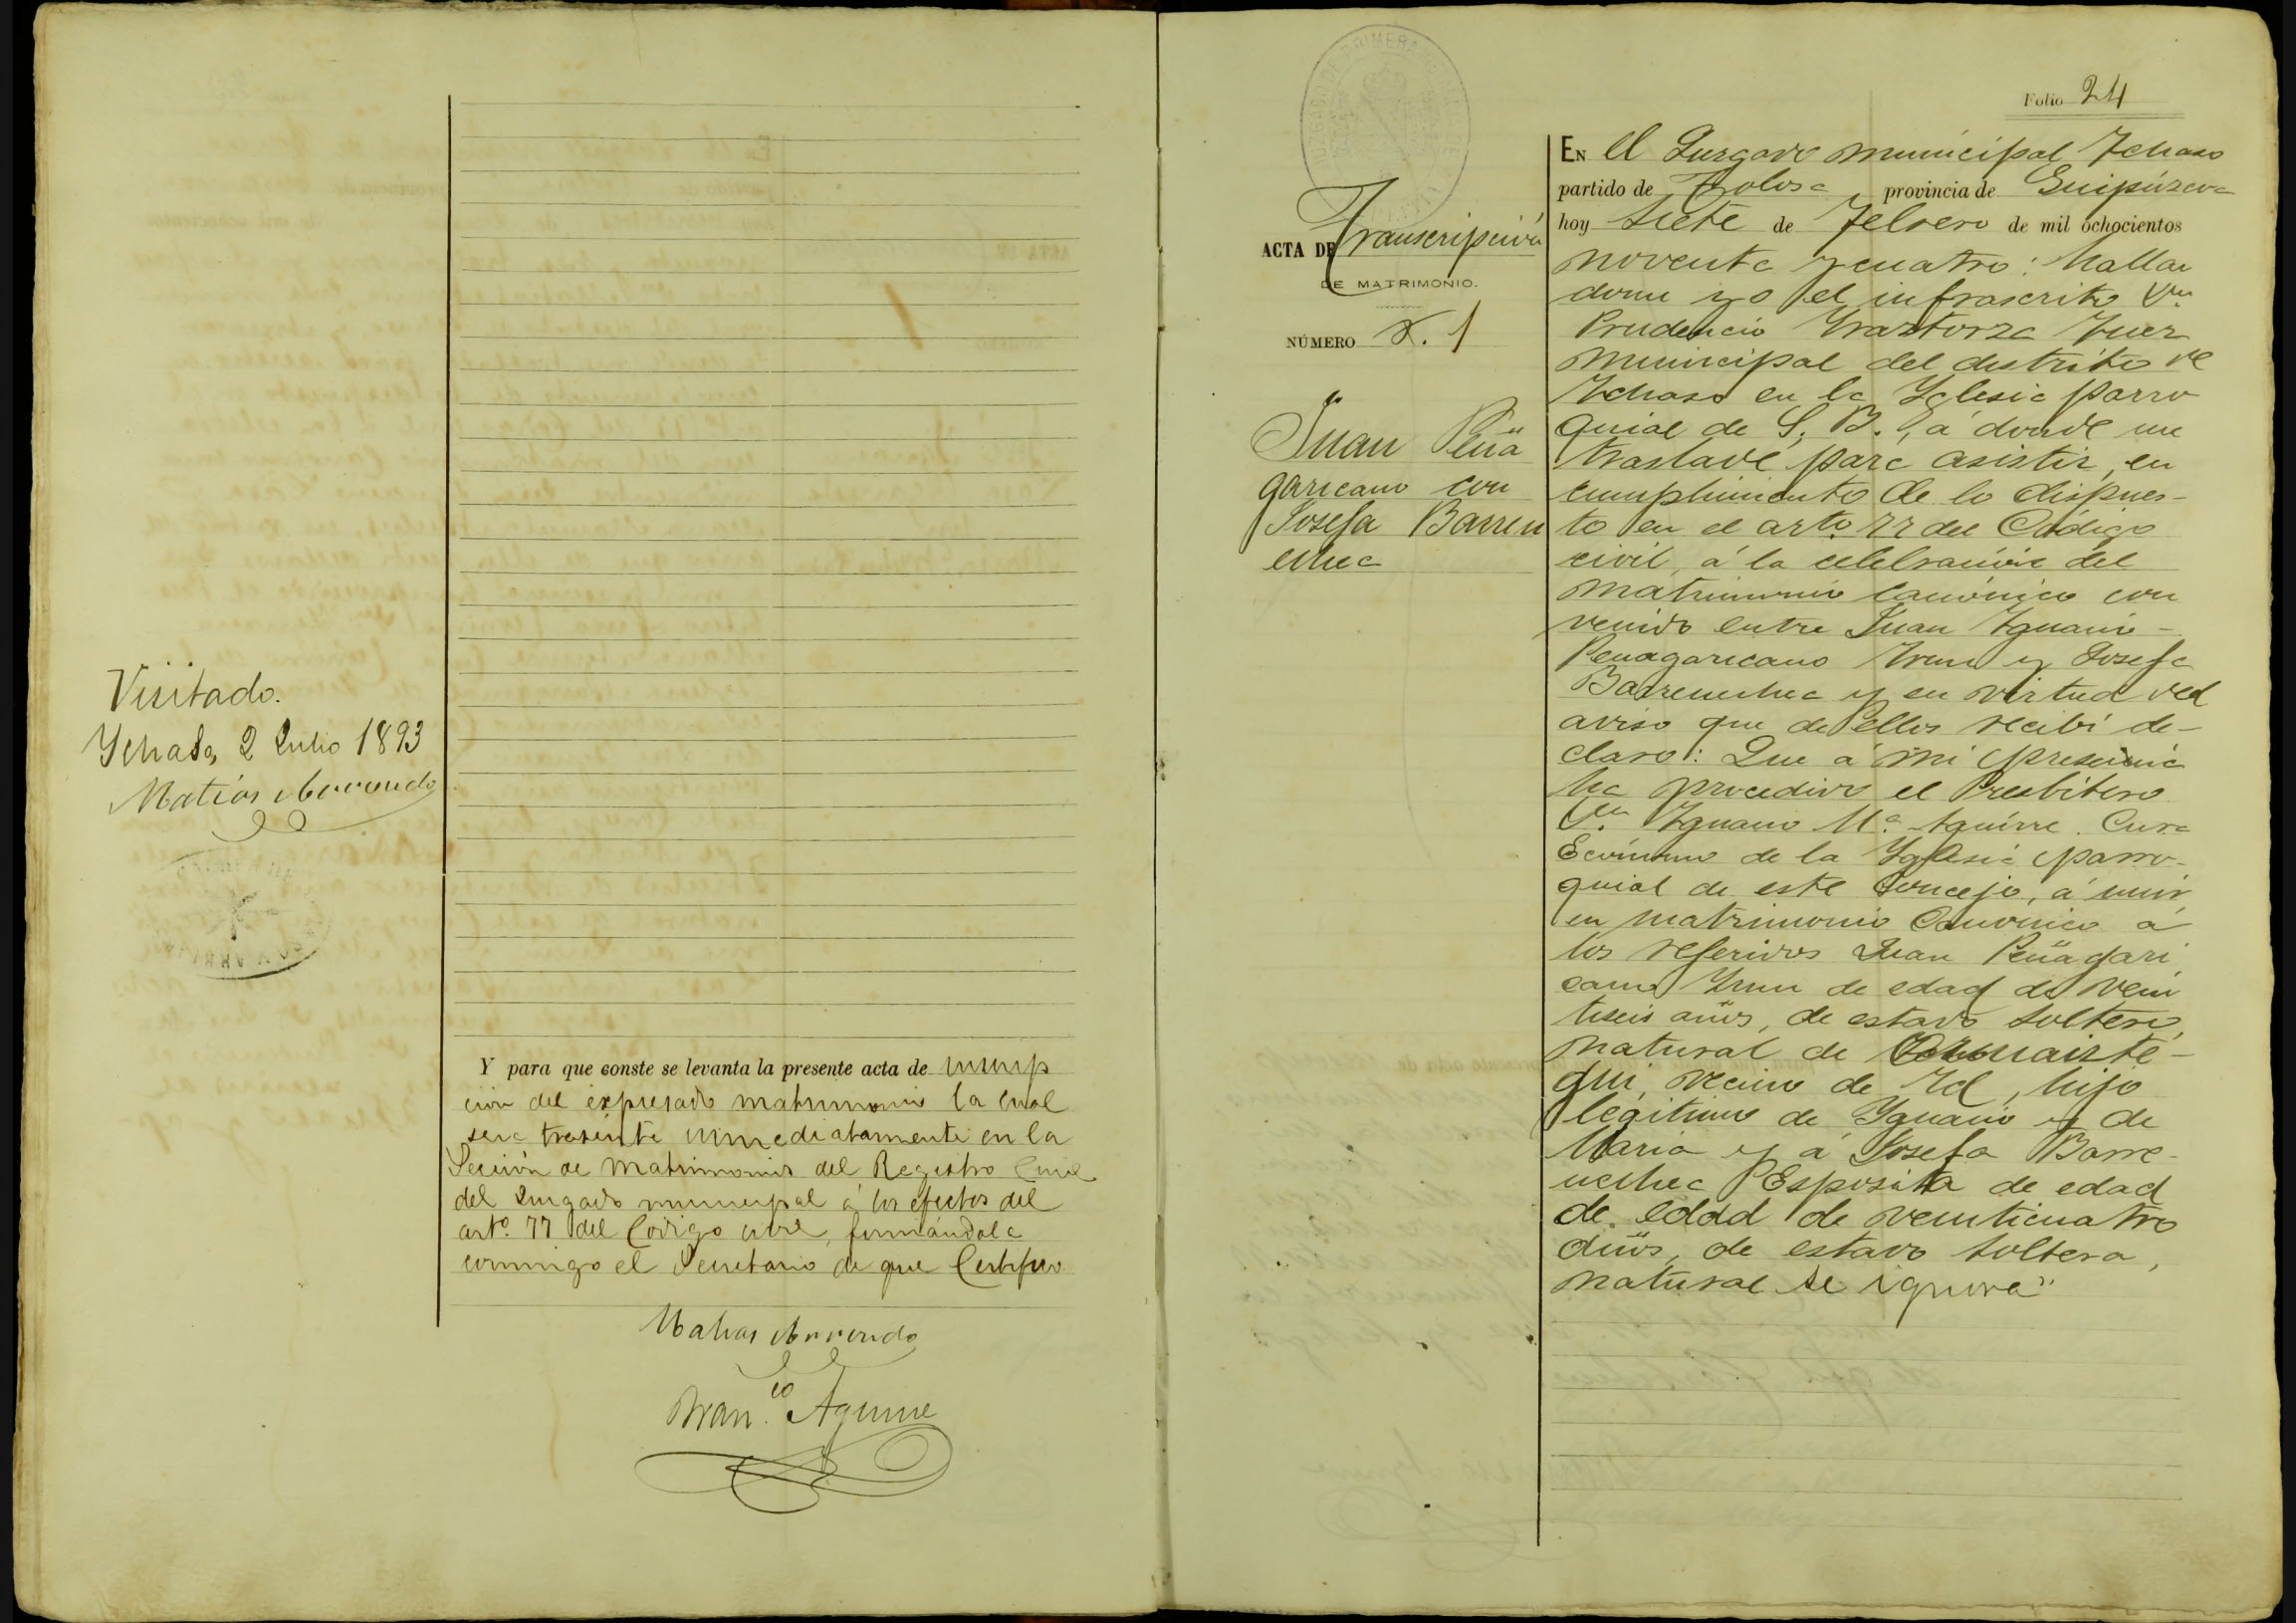 Visitado.
Ychaso, 2 Julio 1893
Matias Arrondo
Y para que conste se levanta la presente acta de inscrip
cion del expresado matrimonio la cual
sera trascrita inmediatamente en la
Sección de Matrimonios del Registro Civil
del Juzgado municipal á los efectos del
artº. 77 del Codigo civil, firmándola
conmigo el Secretario de que Certifico
Matias Arrondo
Franco. Aguirre
Folio 24
ACTA DE Transcripción
DE MATRIMONIO.
NÚMERO 1
Juan Peña
garicano con
Josefa Barren
echea
EN el Juzgado municipal Ichaso
partido de Tolosa, provincia de Guipúzcoa
hoy siete de Febrero de mil ochocientos
noventa y cuatro: hallan
dome yo el infrascrito Dn.
Prudencio Juez
Municipal del distrito de
Ichaso en la Yglesia parro
quial de S. B., á donde me
trasladé para asistir, en
cumplimiento de lo dispues-
to en el arto. 77 del Código
civil, á la celebración del
matrimonio Canónico con
venido entre Juan Ygnacio
Penagaricano Yrun y Josefa
Barrenechea y en virtud del
aviso que de ellos recibí de-
claro: Que á mi presencia
ha procedido el Presbítero
Dn. Ygnacio Ma. Aguirre. Cura
Ecónomo de la Yglesia parro-
quial de este Concejo, á unir
en matrimonio Canonico á
los referidos Juan Peñagari
cano Yrun de edad de vein
tiseis años, de estado soltero,
natural de Ormaiste-
gui, vecino de Id, hijo
legitimo de Ygnacio y de
Maria y á Josefa Barre-
nechea Esposita de edad
de edad de veinticuatro
años, de estado soltera,
natural se ignora"